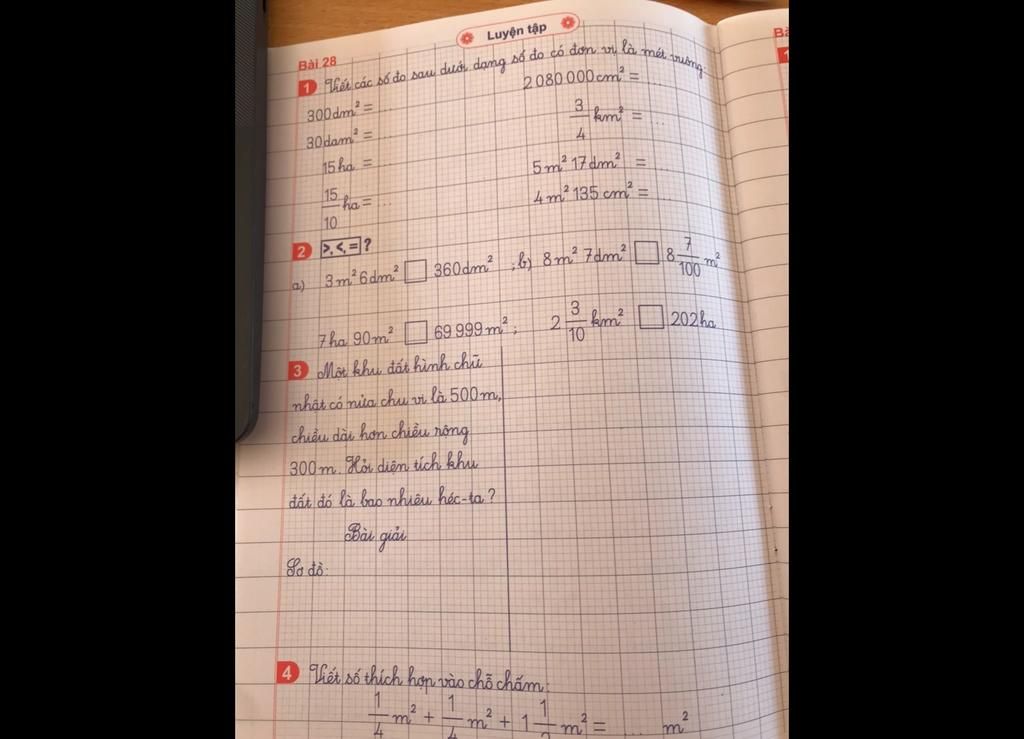 Luyện tập
Bài 28
1 Viết các số đo sau dưới dạng số đo có đơn vị là mét vuông.
300dm² = ... 2 080 000cm² = ...
30dam² = ... 3/4 km² = ...
15ha = ... 5m² 17dm² = ...
15/10 ha = ... 4m² 135cm² = ...
2 >, <, = ?
a) 3m² 6dm² □ 360dm² ; b) 8m² 7dm² □ 8 7/100 m²
7ha 90m² □ 69 999m² ; 2 3/10 km² □ 202ha
3 Một khu đất hình chữ
nhật có nửa chu vi là 500m,
chiều dài hơn chiều rộng
300m. Hỏi diện tích khu
đất đó là bao nhiêu héc-ta?
Bài giải
Sơ đồ:
4 Viết số thích hợp vào chỗ chấm:
1/4 m² + 1/4 m² + 1 1/ m² = ... m²